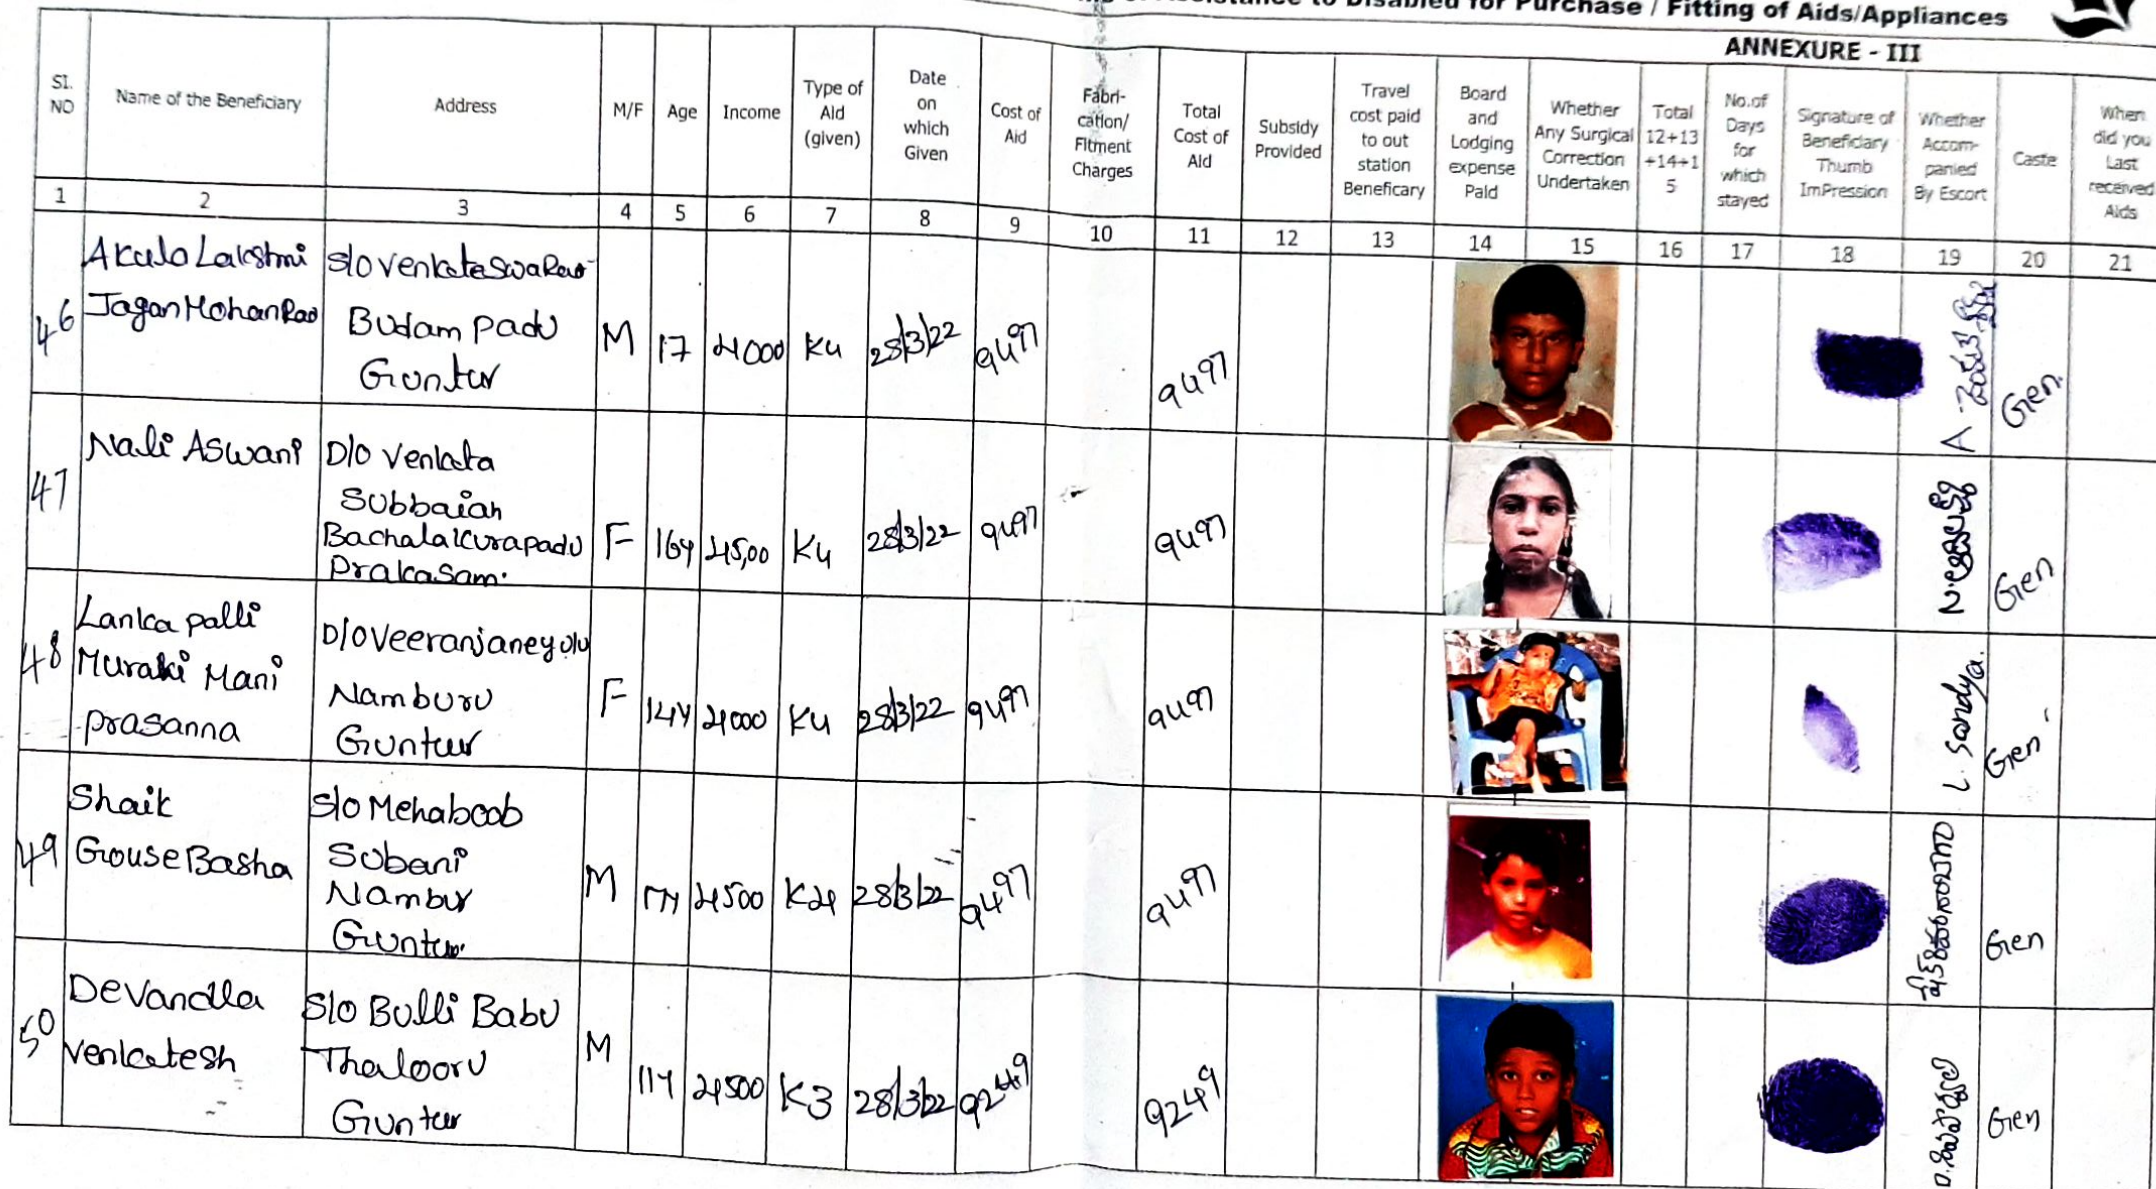 Assistance to Disabled for Purchase / Fitting of Aids/Appliances
ANNEXURE - III
Sl. NO | Name of the Beneficiary | Address | M/F | Age | Income | Type of Aid (given) | Date on which Given | Cost of Aid | Fabri-cation/ Fitment Charges | Total Cost of Aid | Subsidy Provided | Travel cost paid to out station Beneficary | Board and Lodging expense Paid | Whether Any Surgical Correction Undertaken | Total 12+13+14+15 | No.of Days for which stayed | Signature of Beneficiary Thumb ImPression | Whether Accom-panied By Escort | Caste | When did you Last received Aids
1 | 2 | 3 | 4 | 5 | 6 | 7 | 8 | 9 | 10 | 11 | 12 | 13 | 14 | 15 | 16 | 17 | 18 | 19 | 20 | 21
46 | Akula Lakshmi Jagan Mohan Rao | S/o Venkateswa Rao Budam padu Guntur | M | 17 | 4000 | K4 | 28/3/22 | 9497 | 9497 | Gen.
47 | Nali Aswani | D/o Venkata Subbaiah Bachalakurapadu Prakasam. | F | 16Y | 45,00 | K4 | 28/3/22 | 9497 | 9497 | Gen
48 | Lanka palli Muraki Mani prasanna | D/o Veeranjaneyulu Namburu Guntur | F | 14Y | 4000 | K4 | 28/3/22 | 9497 | 9497 | L. Sandya. | Gen
49 | Shaik Gouse Basha | S/o Mehaboob Subani Nambur Guntur. | M | 4500 | K4 | 28/3/22 | 9497 | 9497 | Gen
50 | Devandla Venkatesh | S/o Bulli Babu Thalooru Guntur | M | 11Y | 4500 | K3 | 28/3/22 | 9249 | 9249 | Gen